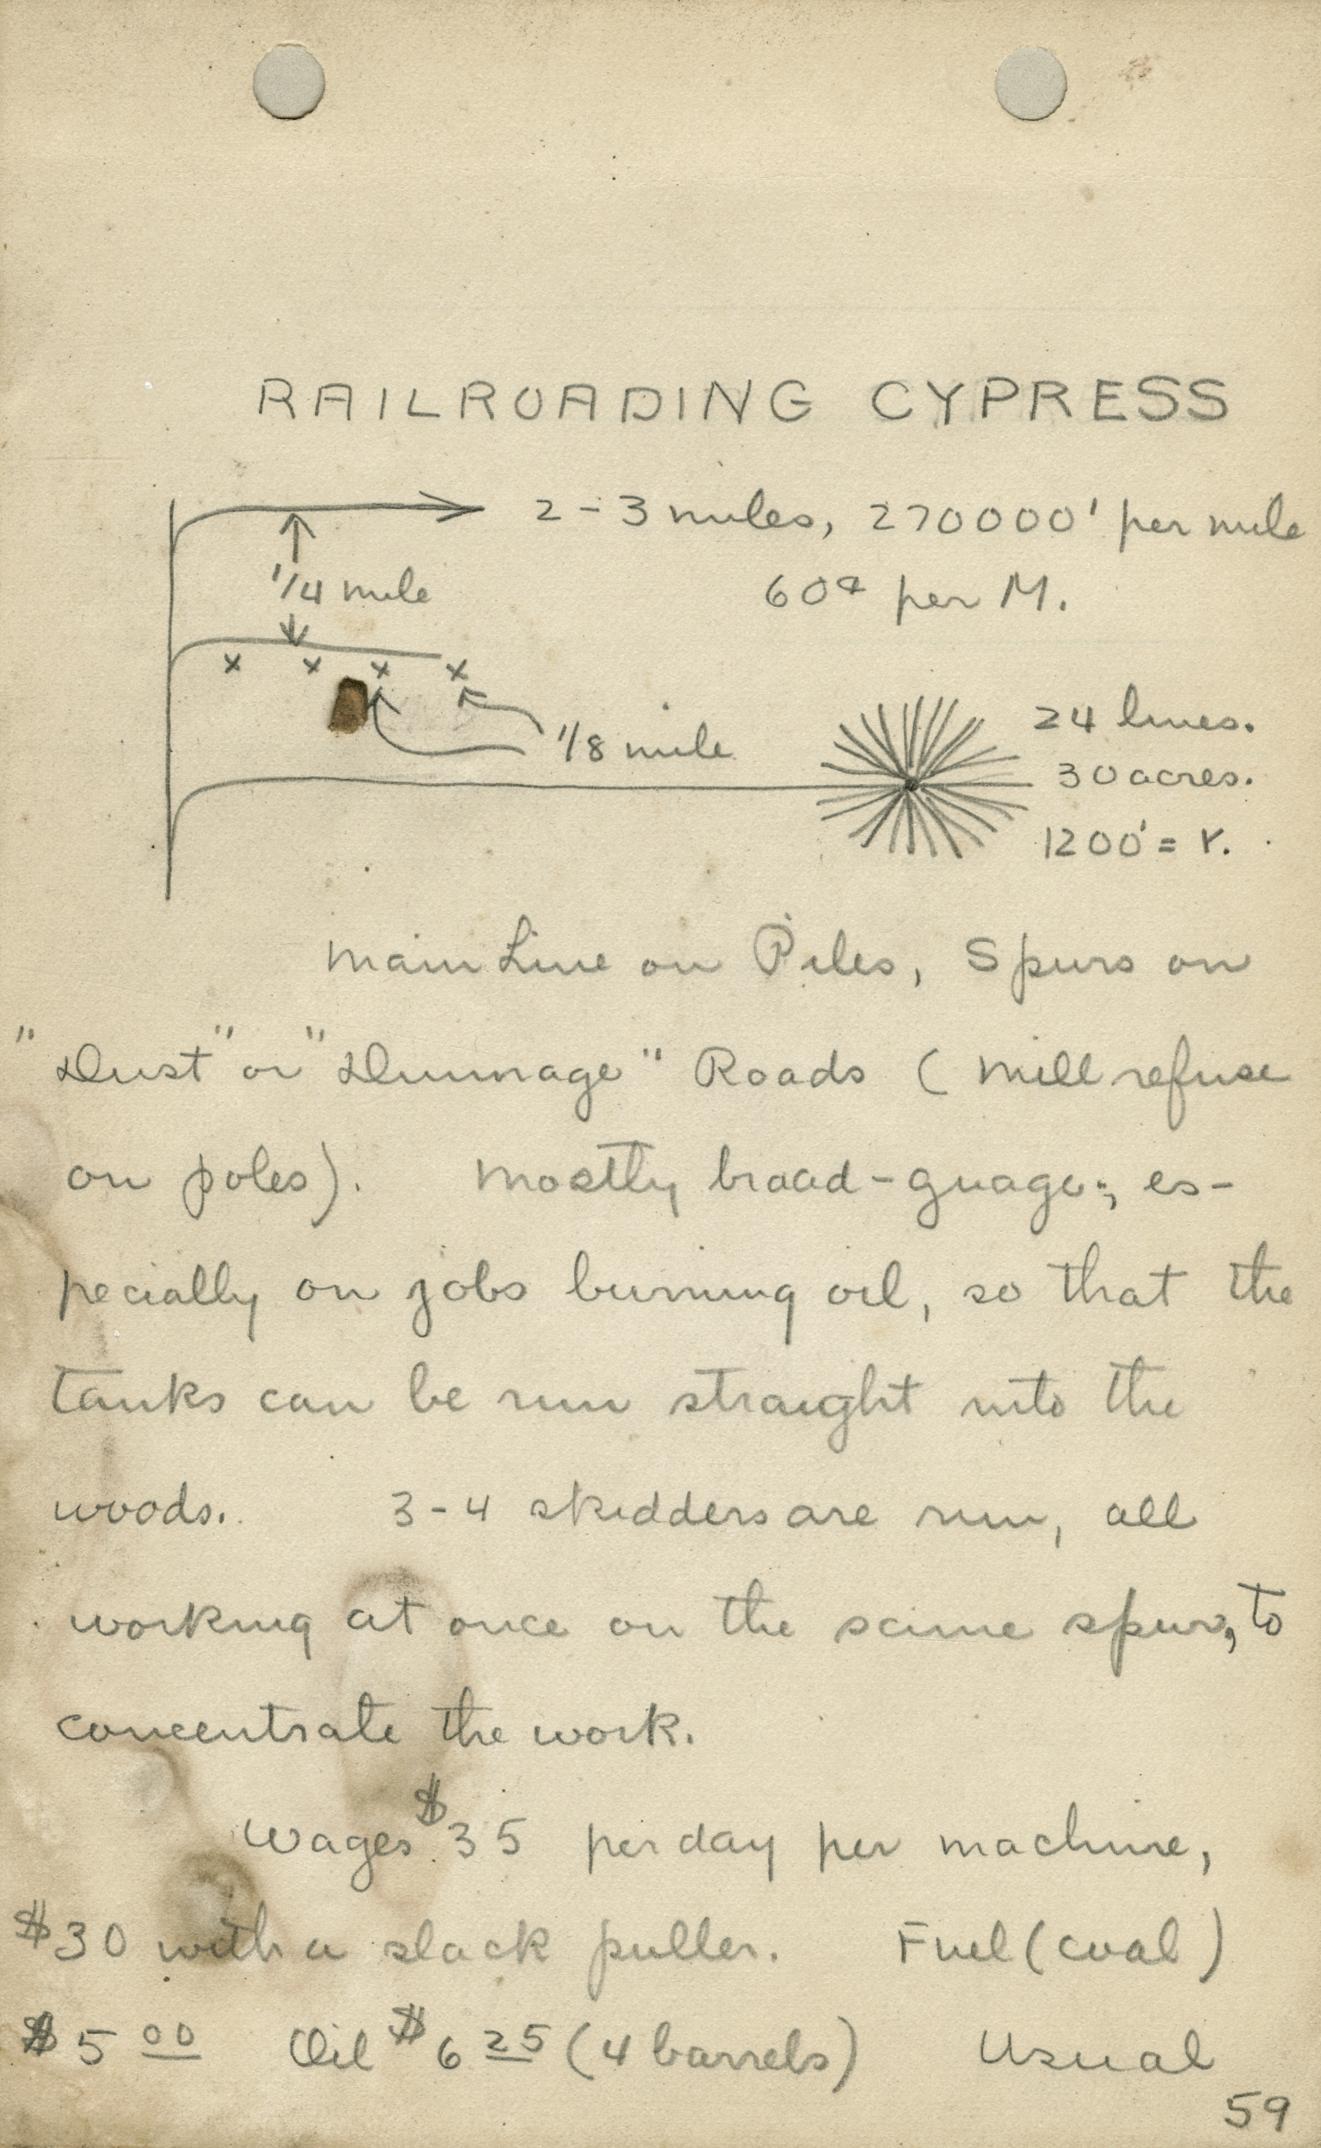 RAILROADING CYPRESS
2-3 miles, 270000' per mile
1/4 mile
60¢ per M.
x x x x
1/8 mile
24 lines.
30 acres.
1200' = r.
Main Line on Piles, Spurs on
"Dust" or "Dunnage" Roads (Mill refuse
on poles). Mostly broad-guage; es-
pecially on jobs burning oil, so that the
tanks can be run straight into the
woods. 3-4 skidders are run, all
working at once on the same spur, to
concentrate the work.
Wages $35 per day per machine,
$30 with a slack puller. Fuel (coal)
$5 00 Oil $6 25 (4 barrels) Usual
59